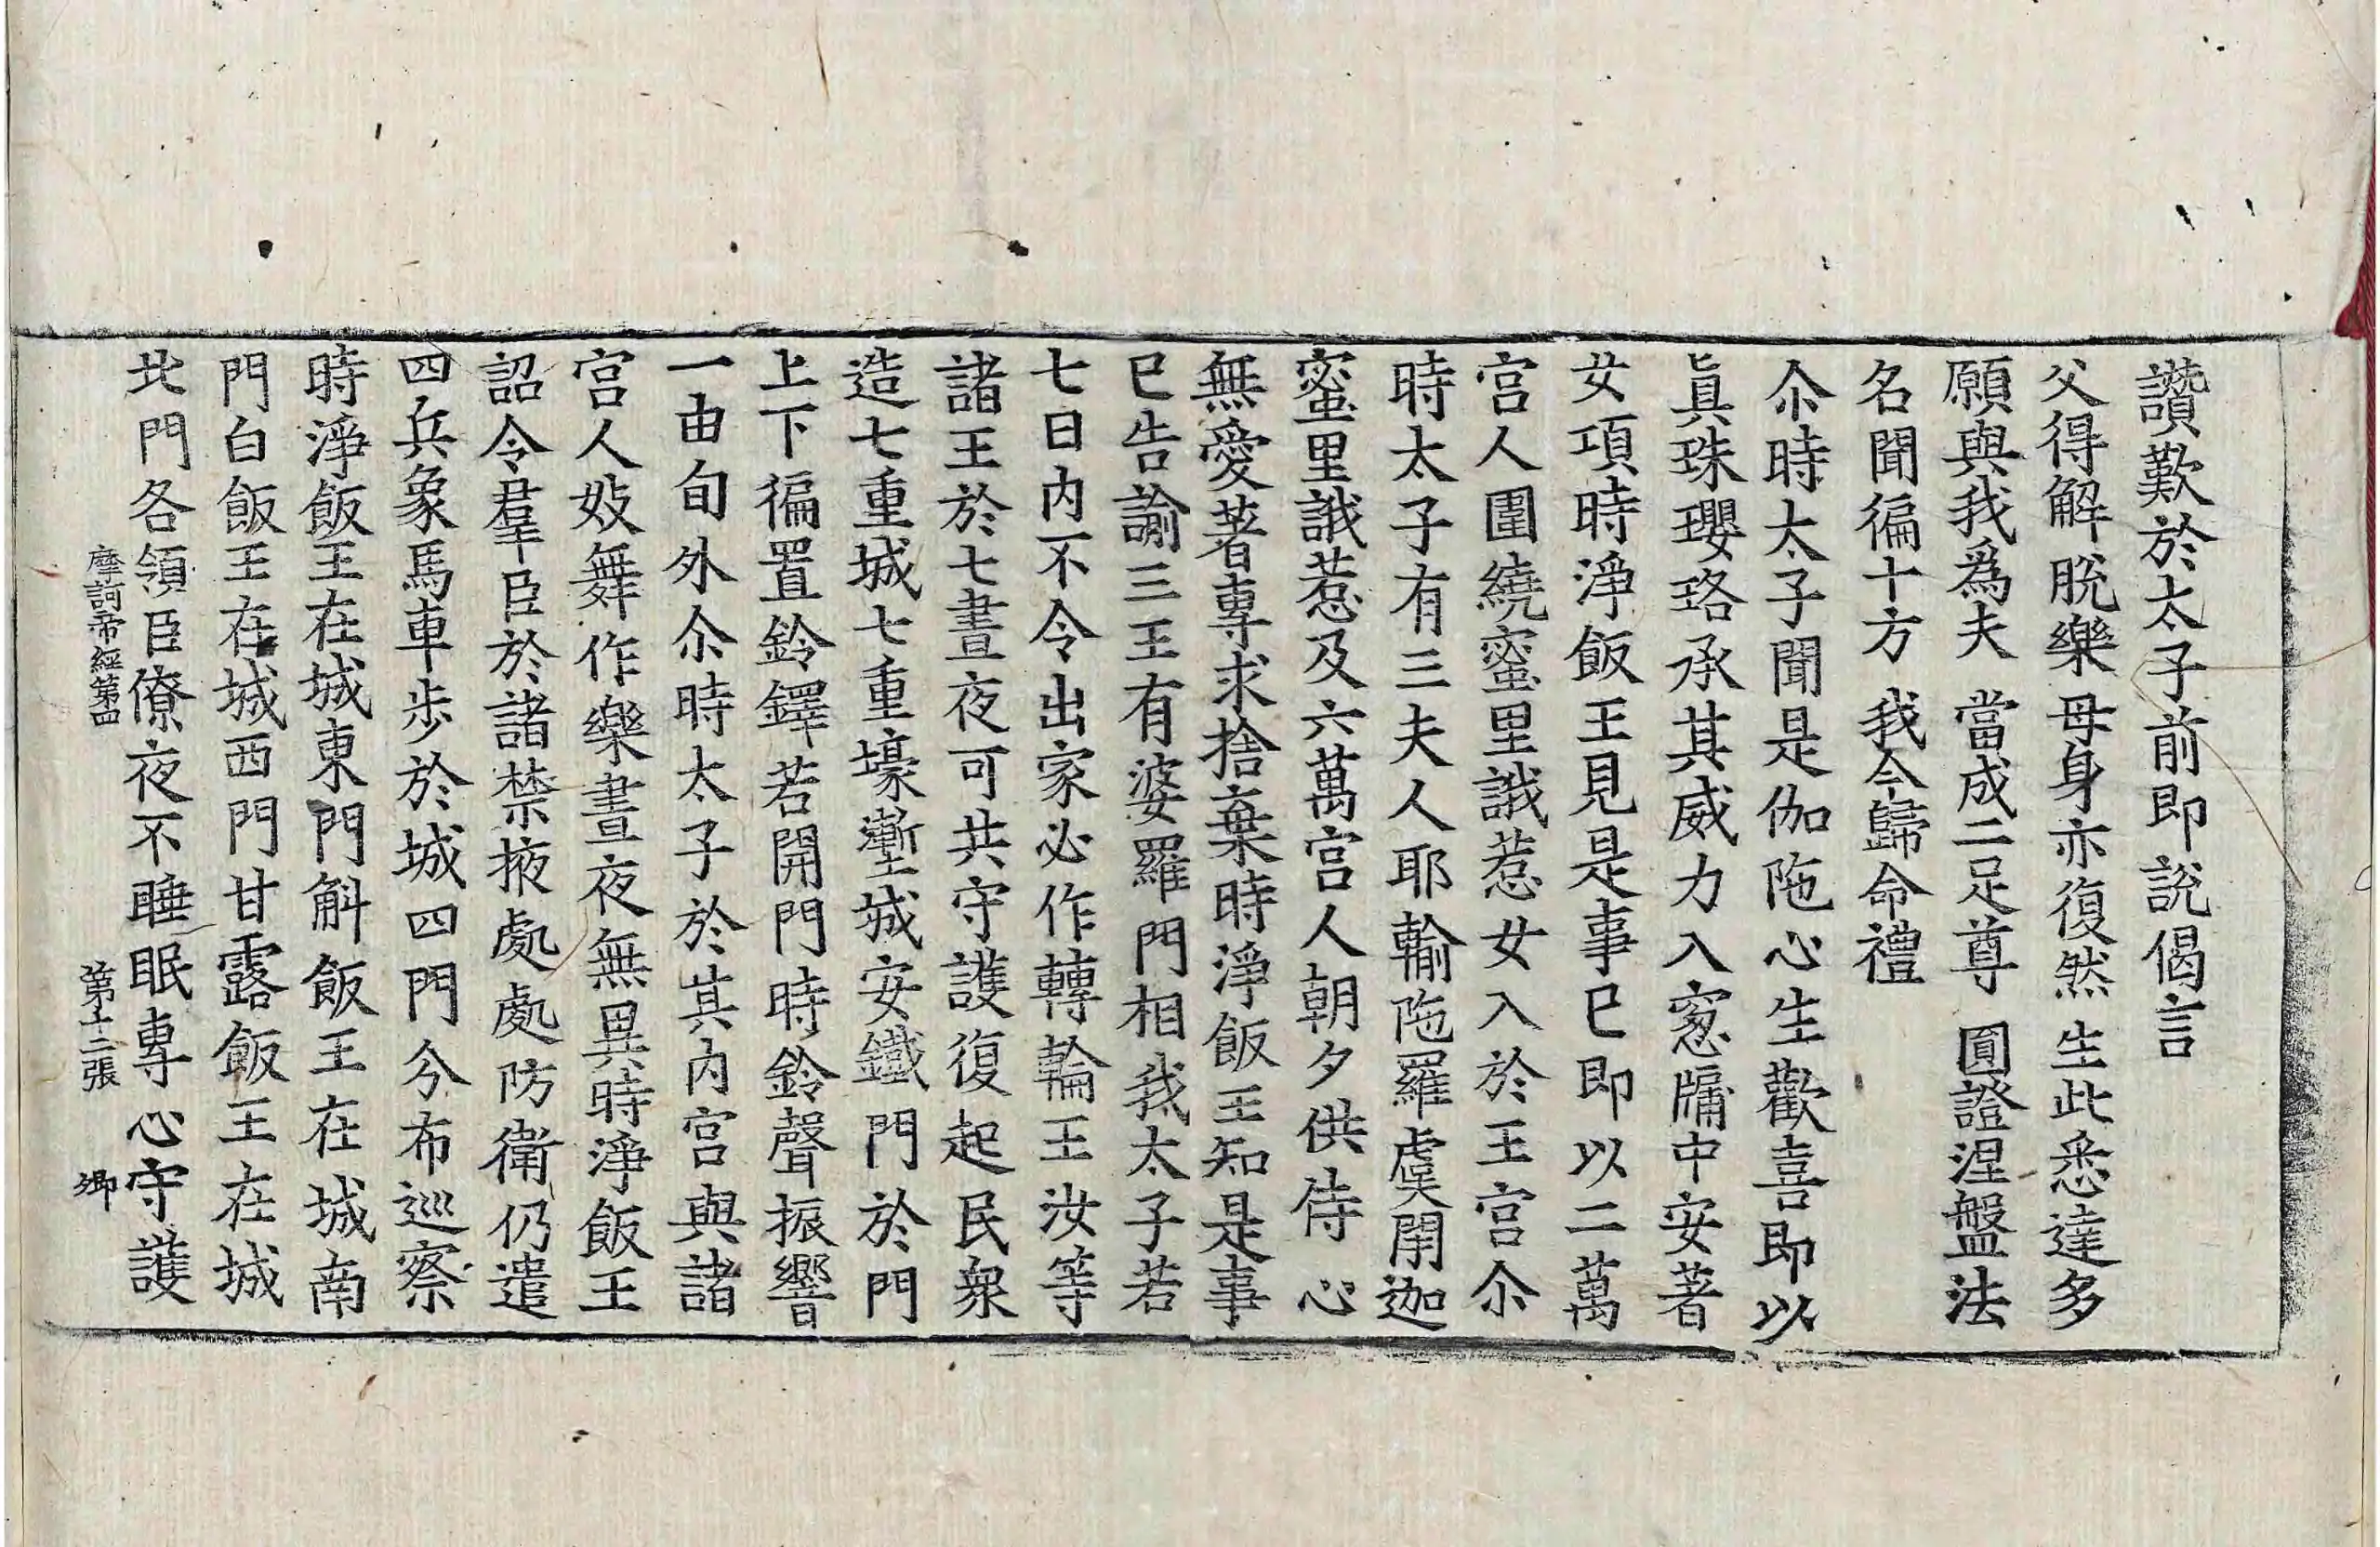 讚歎於太子前即說偈言
父得解脫樂 母身亦復然 生此悉達多
願與我爲夫 當成二足尊 圓證涅盤法
名聞徧十方 我今歸命禮
尒時太子聞是伽陁心生歡喜即以
眞珠瓔珞承其威力入窻牖中安著
女項時淨飯王見是事已即以二萬
宮人圍繞蜜里誐惹女入於王宮尒
時太子有三夫人耶輸陁羅虞閈迦
蜜里誐惹及六萬宮人朝夕供侍心
無愛著專求捨棄時淨飯王知是事
已告諭三王有婆羅門相我太子若
七日內不令出家必作轉輪王汝等
諸王於七晝夜可共守護復起民衆
造七重城七重壕塹城安鐵門於門
上下徧置鈴鐸若開門時鈴聲振響
一由旬外尒時太子於其內宮與諸
宮人妓舞作樂晝夜無異時淨飯王
詔令羣臣於諸禁掖處處防衛仍遣
四兵象馬車步於城四門分布巡察
時淨飯王在城東門斛飯王在城南
門白飯王在城西門甘露飯王在城
北門各領臣僚夜不睡眠專心守護
摩訶帝經第四 第十二張 卿